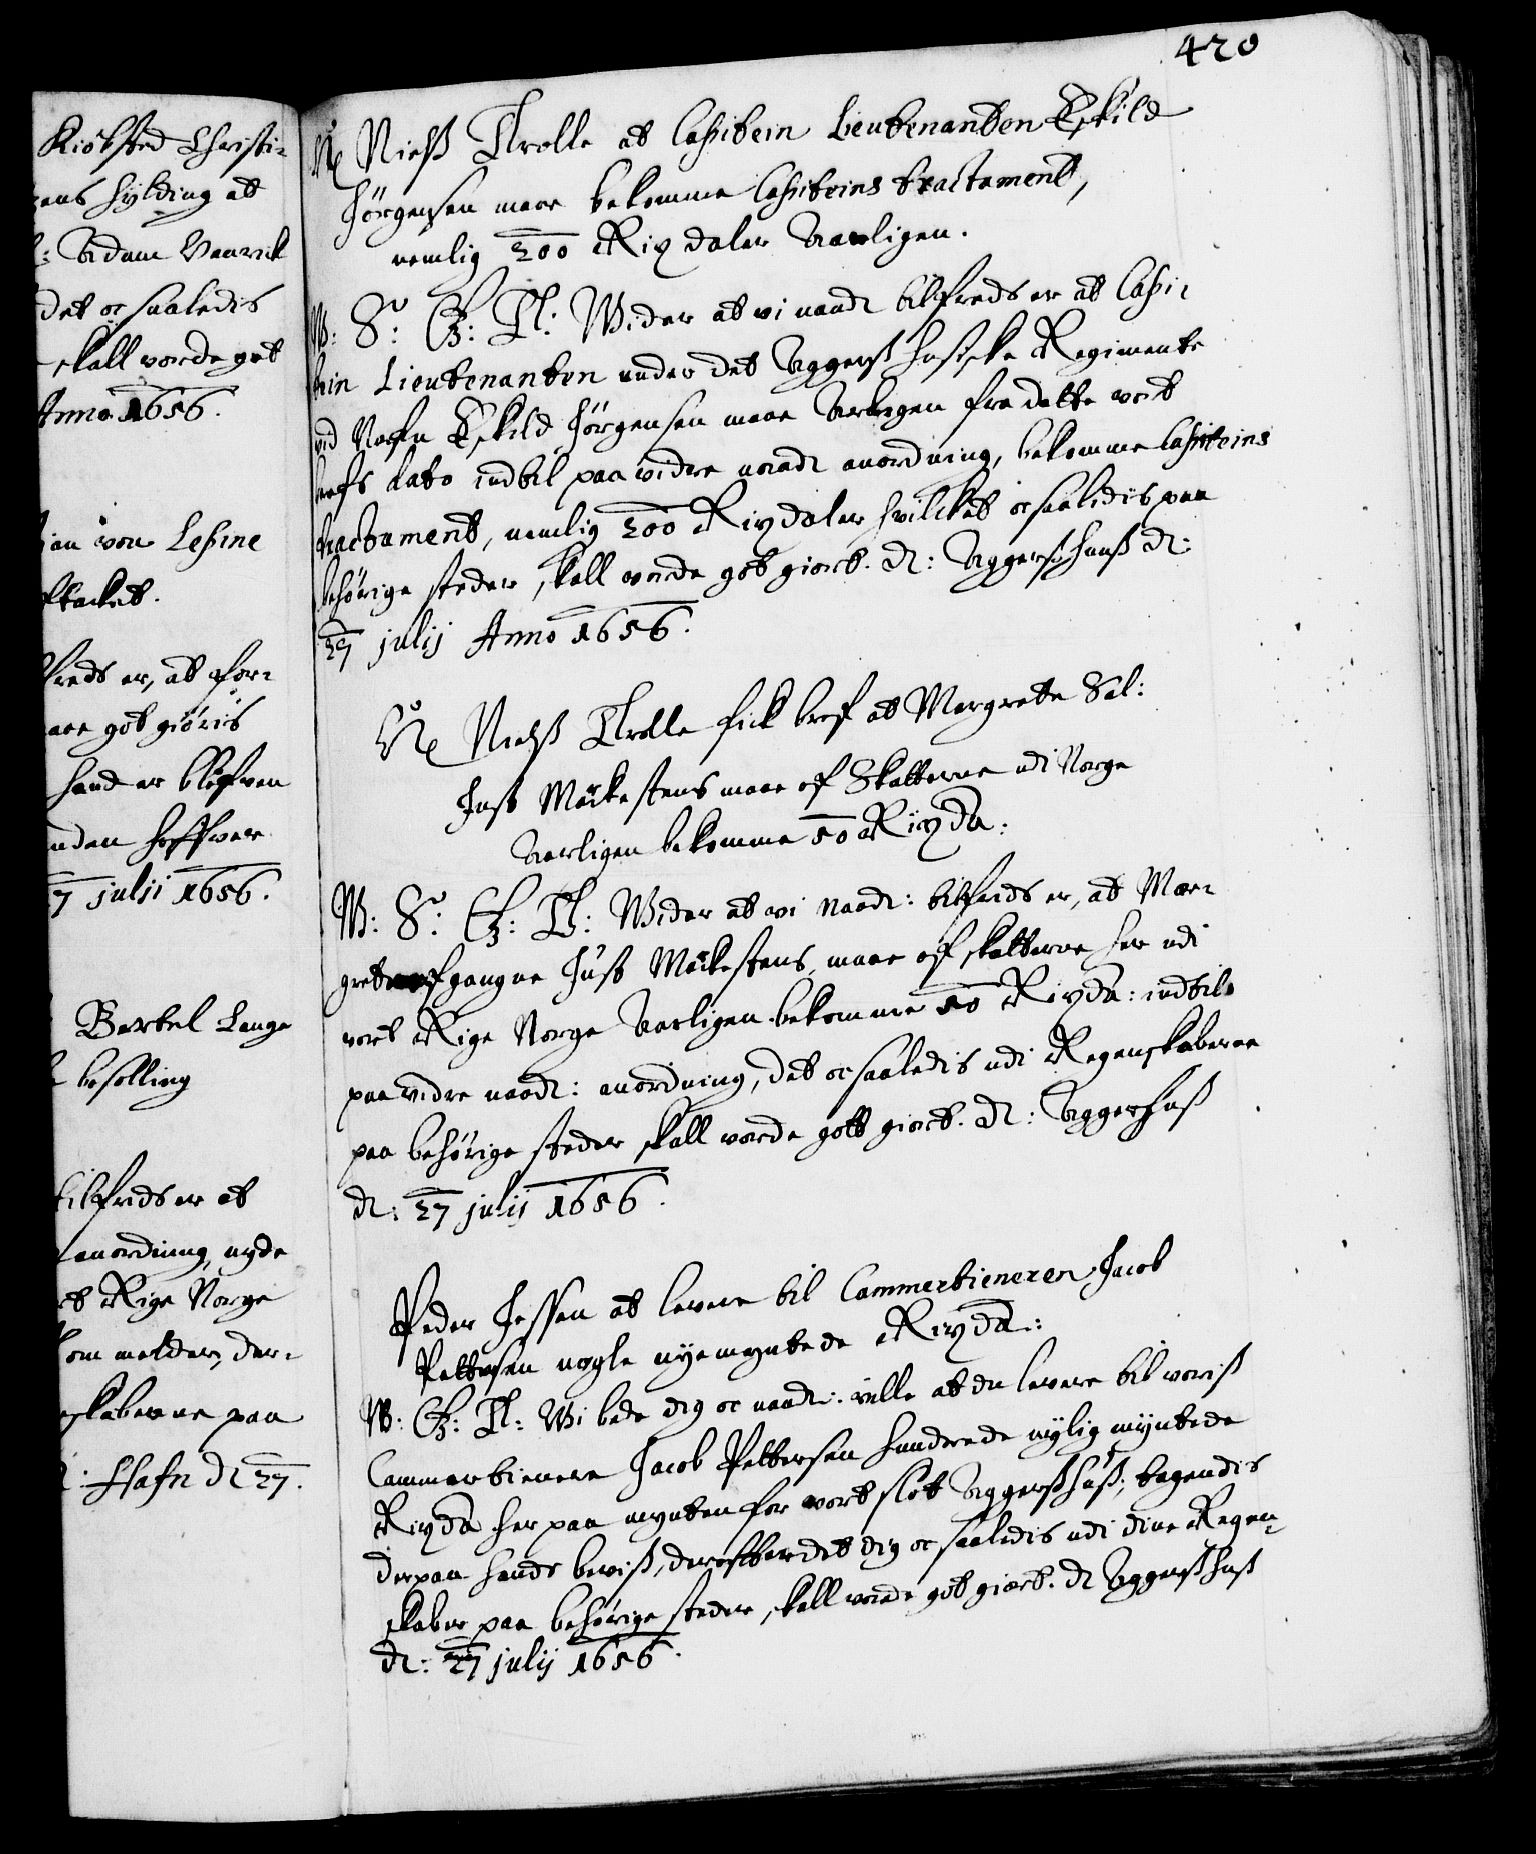 420
Kiöbsted Christi-
ens hylding at
: Adam Vannick
det oc saaledis
skall vorde got
Anno 1656.
ian von Lesine
stacket.
freds er, at for-
are got giöris
hand er blefven
nden hoffver
27 julii 1656.
Bertel Lange
besolling
tilfreds er at
anordning, nyde
rt Rige Norge
om melder, der-
skaberne paa
Hafn dl 27.
Nielß Trolle at Capitein Lieutenanten Eskild
Jörgensen maae bekomme Capiteins tractament,
nemlig 200 Rixdaler Aarligen.
W: S: G: T: Wider at vi naadl tilfreds er at Capi-
tein Lieutenanten under det Aggerß husiske Regimente
ved Nafn Eskild Jörgensen maae Aarligen fra dette vort
brefs dato indtil paa videre naadl anordning, bekomme Capiteins
tractament, nemlig 200 Rixdaler hvilcket oc saaledis paa
behörige steder skall vorde got giort. dl: Aggerßhuuß dl:
27 julij Anno 1656.
Nielß Trolle fick bref at Margrete Sal:
Just Mackestens maae af Skatterne udi Norge
Aarligen bekomme 50 Rixda:
W: S: G: T: Wider at vi Naadl: tilfreds er, at Mar-
grete afgangne Just Mackestens, maae af skatterne her udi
vort Rige Norge Aarligen bekomme 50 Rixda: indtil
paa vidre naadl: anordning, det oc saaledis udi Regenskaberne
paa behörige steder skall vorde gott giort. dl: Aggerhuß
dl: 27 julij 1656.
Peder Jessen at levere til Cammertieneren Jacob
Pettersen nogle nyemyntede Rixda:
W: G: T: Wi bede dig oc naadl: ville at du levere til voriß
Cammertienere Jacob Pettersen hundrede nylig myntede
Rixda her paa mynten for vort slot Aggerßhuß, tagendis
derpaa hands beviß, derefter det dig oc saaledis udi dine Regen-
skaber paa behörige steder, skall vorde got giort. dl Aggerßhuß
dl: 27 julij 1656.